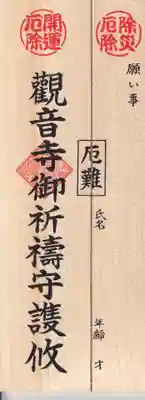 除災
厄除
願い事
厄難
氏名
年齢 才
開運
厄除
觀音寺御祈禱守護攸